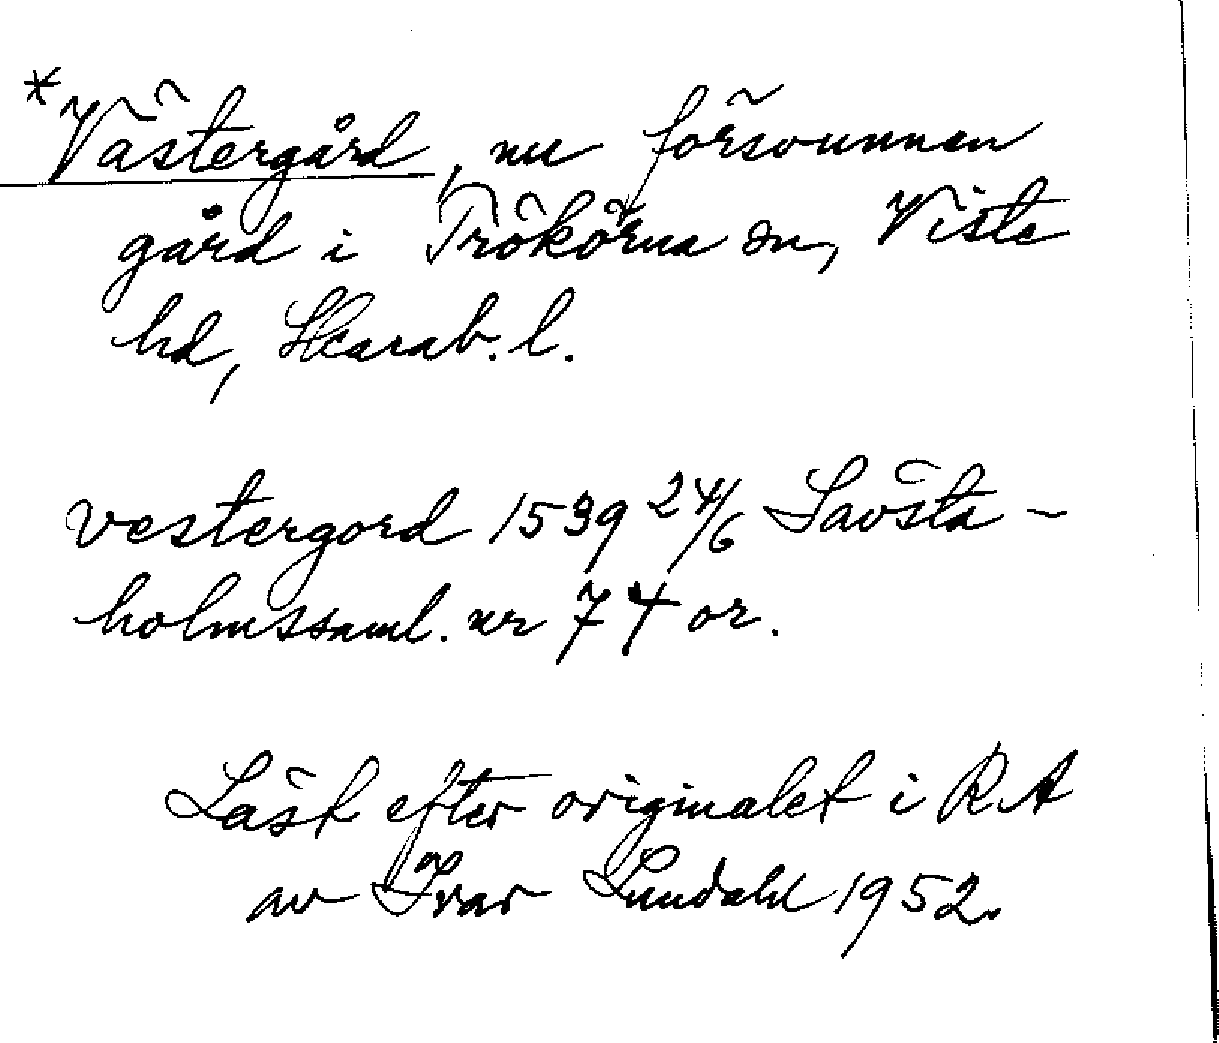 *Västergård, nu försvunnen
gård i Trökörna sn, Viste
hd, Skarab. l.
vestergord 1539 24/6 Sävsta-
holmssaml. nr 74 or.
Läst efter originalet i RA
av Ivar Lundahl 1952.